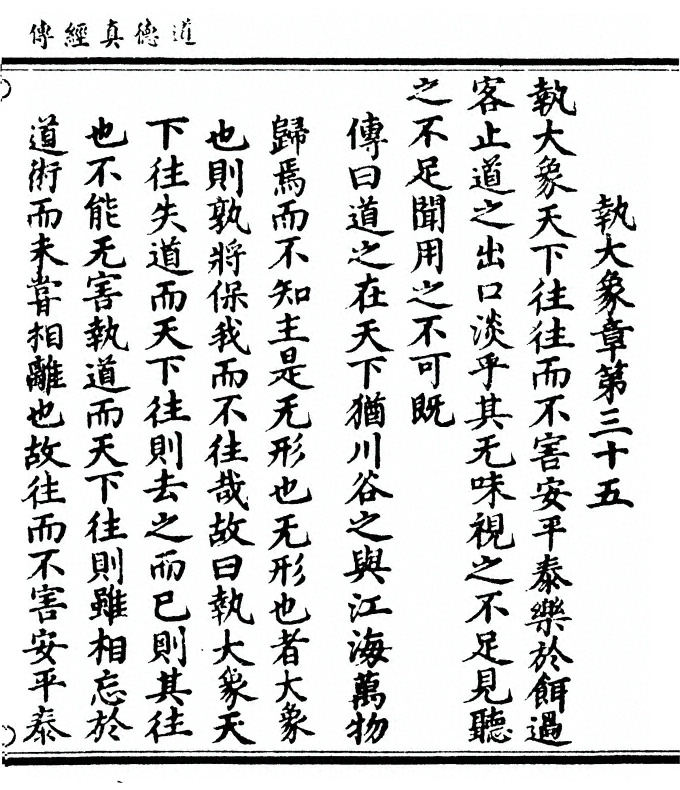 道德真經傳
執大象章第三十五
執大象天下往往而不害安平泰樂於餌過
客止道之出口淡乎其无味視之不足見聽
之不足聞用之不可既
傳曰道之在天下猶川谷之與江海萬物
歸焉而不知主是无形也无形也者大象
也則孰將保我而不往哉故曰執大象天
下往失道而天下往則去之而已則其往
也不能无害執道而天下往則雖相忘於
道術而未甞相離也故往而不害安平泰